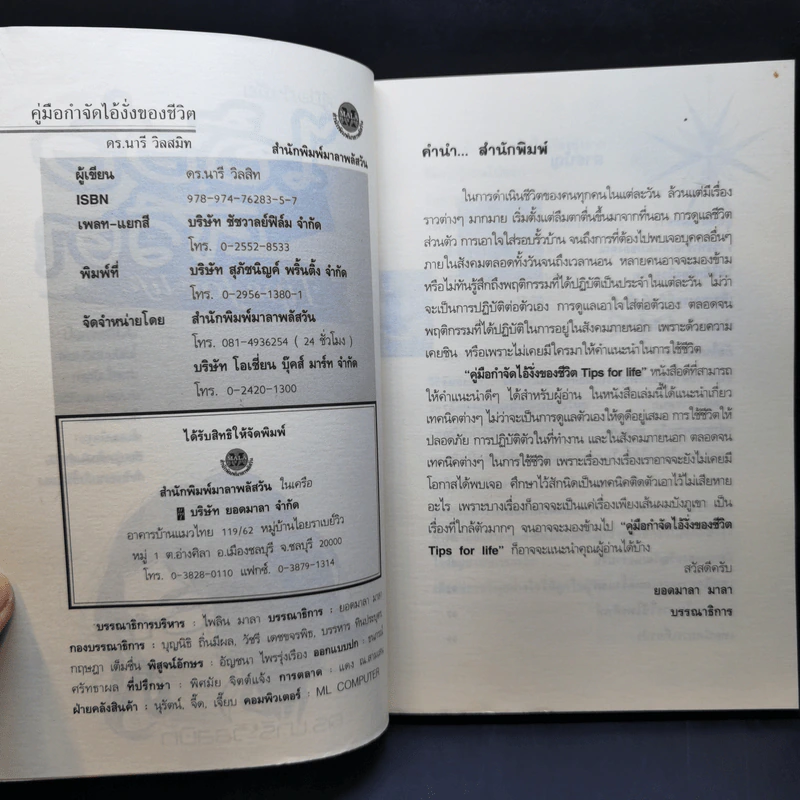 คู่มือกำจัดไอ้งั่งของชีวิต
ดร.นารี วิลสมิท
สำนักพิมพ์มาลาพลัสวัน
ผู้เขียน ดร.นารี วิลสิท
ISBN 978-974-76283-5-7
เพลท-แยกสี บริษัท ชัชวาลย์ฟิล์ม จำกัด
โทร. 0-2552-8533
พิมพ์ที่ บริษัท สุภัชนิญค์ พริ้นติ้ง จำกัด
โทร. 0-2956-1380-1
จัดจำหน่ายโดย สำนักพิมพ์มาลาพลัสวัน
โทร. 081-4936254 ( 24 ชั่วโมง )
บริษัท โอเชี่ยน บุ๊คส์ มาร์ท จำกัด
โทร. 0-2420-1300
ได้รับสิทธิให้จัดพิมพ์
MALA
สำนักพิมพ์มาลาพลัสวัน ในเครือ
บริษัท ยอดมาลา จำกัด
อาคารบ้านแมวไทย 119/62 หมู่บ้านไอยราเบย์วิว
หมู่ 1 ต.อ่างศิลา อ.เมืองชลบุรี จ.ชลบุรี 20000
โทร. 0-3828-0110 แฟกซ์. 0-3879-1314
บรรณาธิการบริหาร : ไพลิน มาลา บรรณาธิการ : ยอดมาลา มาลา
กองบรรณาธิการ : บุญนิธิ ถิ่นมีผล, วัชรี เดชขจรพิช, บรรหาร
กฤษฎา เต็มชื่น พิสูจน์อักษร : อัญชนา ไพรรุ่งเรือง ออกแบบปก :
ศรัทธาผล ที่ปรึกษา : พิศมัย จิตต์แจ้ง การตลาด : แดง
ฝ่ายคลังสินค้า : นุรัตน์, จี๊ด, เจี๊ยบ คอมพิวเตอร์ : ML COMPUTER
คำนำ... สำนักพิมพ์
ในการดำเนินชีวิตของคนทุกคนในแต่ละวัน ล้วนแต่มีเรื่อง
ราวต่างๆ มากมาย เริ่มตั้งแต่ลืมตาตื่นขึ้นมาจากที่นอน การดูแลชีวิต
ส่วนตัว การเอาใจใส่รอบรั้วบ้าน จนถึงการที่ต้องไปพบเจอบุคคลอื่นๆ
ภายในสังคมตลอดทั้งวันจนถึงเวลานอน หลายคนอาจจะมองข้าม
หรือไม่ทันรู้สึกถึงพฤติกรรมที่ได้ปฏิบัติเป็นประจำในแต่ละวัน ไม่ว่า
จะเป็นการปฏิบัติต่อตัวเอง การดูแลเอาใจใส่ต่อตัวเอง ตลอดจน
พฤติกรรมที่ได้ปฏิบัติในการอยู่ในสังคมภายนอก เพราะด้วยความ
เคยชิน หรือเพราะไม่เคยมีใครมาให้คำแนะนำในการใช้ชีวิต
“คู่มือกำจัดไอ้งั่งของชีวิต Tips for life” หนังสือดีที่สามารถ
ให้คำแนะนำดีๆ ได้สำหรับผู้อ่าน ในหนังสือเล่มนี้ได้แนะนำเกี่ยว
เทคนิคต่างๆ ไม่ว่าจะเป็นการดูแลตัวเองให้ดูดีอยู่เสมอ การใช้ชีวิตให้
ปลอดภัย การปฏิบัติตัวในที่ทำงาน และในสังคมภายนอก ตลอดจน
เทคนิคต่างๆ ในการใช้ชีวิต เพราะเรื่องบางเรื่องเราอาจจะยังไม่เคยมี
โอกาสได้พบเจอ ศึกษาไว้สักนิดเป็นเทคนิคติดตัวเอาไว้ไม่เสียหาย
อะไร เพราะบางเรื่องก็อาจจะเป็นแค่เรื่องเพียงเส้นผมบังภูเขา เป็น
เรื่องที่ใกล้ตัวมากๆ จนอาจจะมองข้ามไป “คู่มือกำจัดไอ้งั่งของชีวิต
Tips for life” ก็อาจจะแนะนำคุณผู้อ่านได้บ้าง
สวัสดีครับ
ยอดมาลา มาลา
บรรณาธิการ